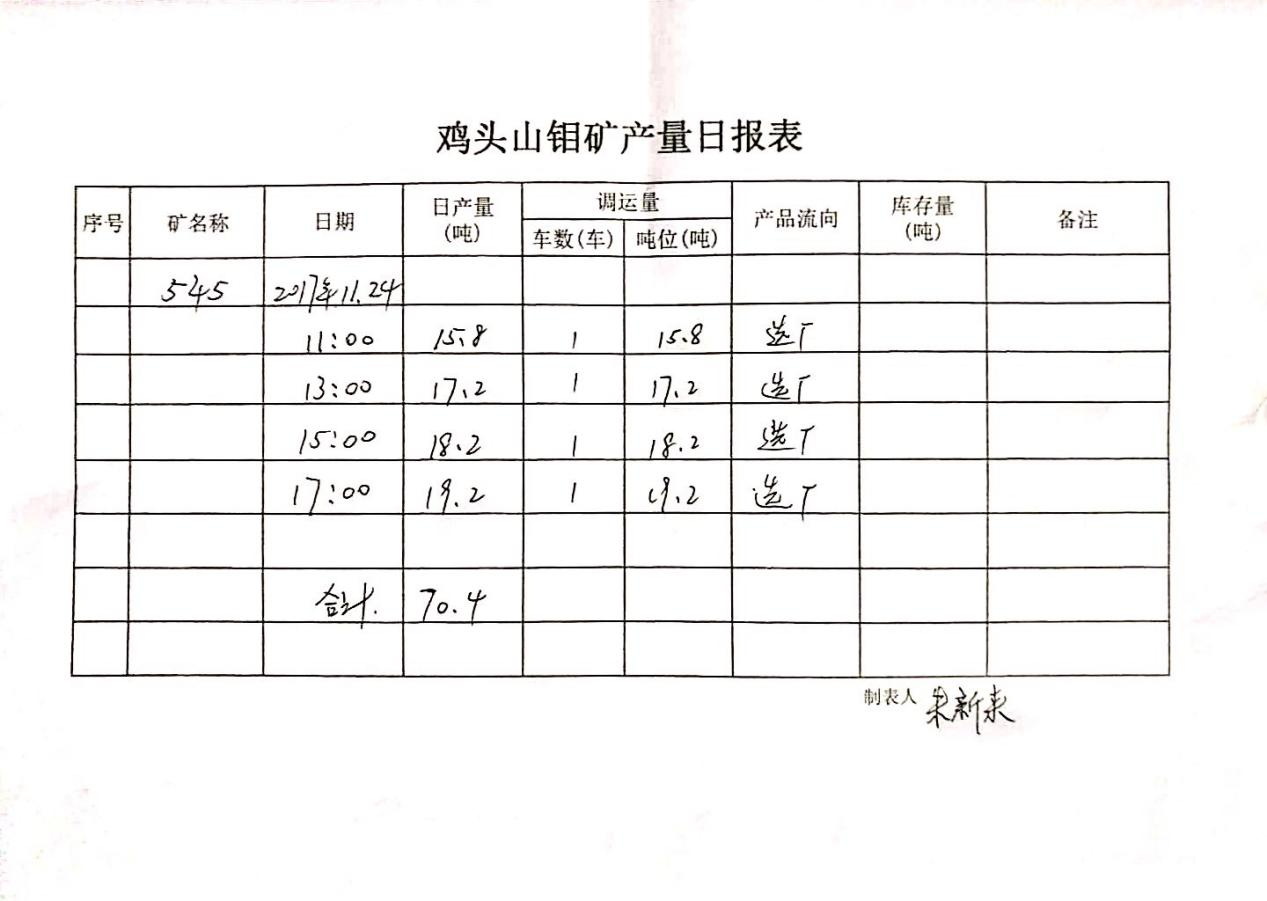 鸡头山钼矿产量日报表
序号 矿名称 日期 日产量(吨) 调运量 产品流向 库存量(吨) 备注
车数(车) 吨位(吨)
545 2017年11.24
11:00 15.8 1 15.8 选厂
13:00 17.2 1 17.2 选厂
15:00 18.2 1 18.2 选厂
17:00 19.2 1 19.2 选厂
合计. 70.4
制表人